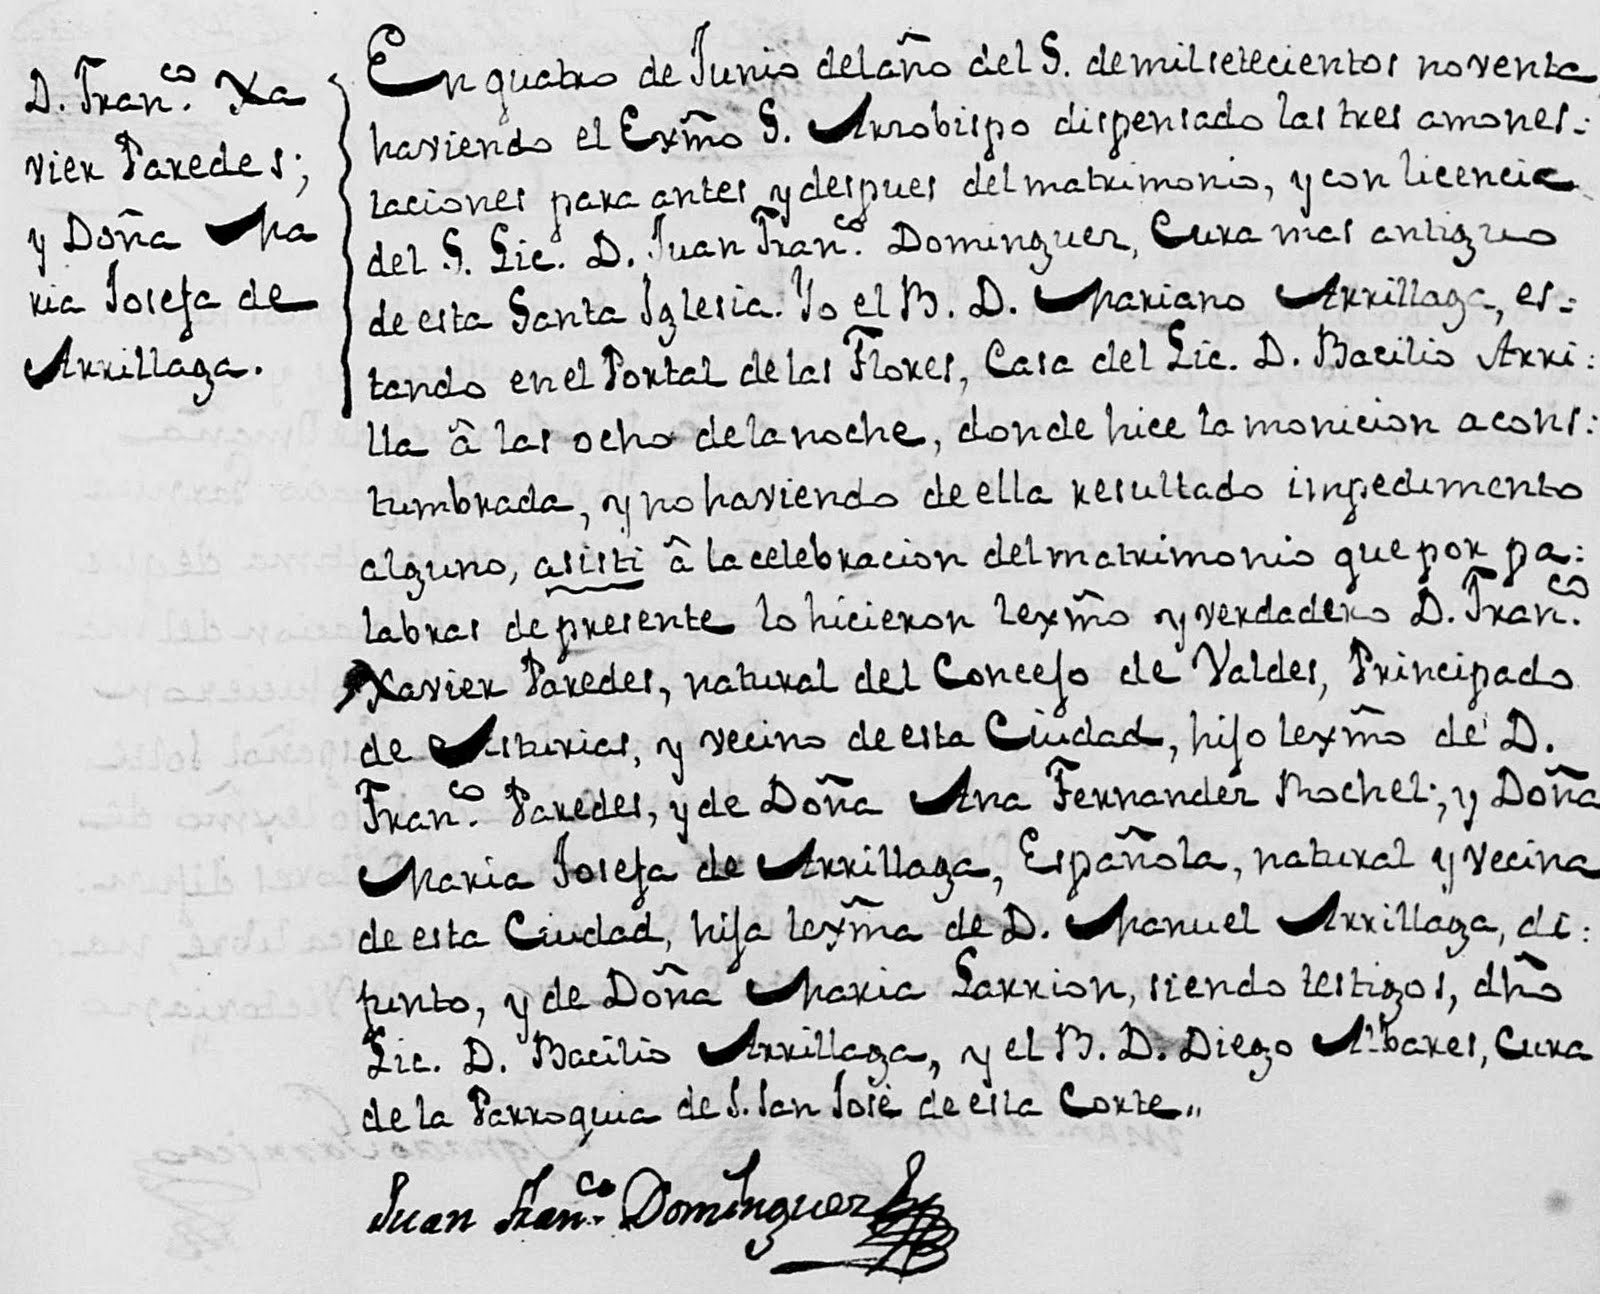 D. Fran.co Xa
vier Paredes;
y Doña Ma
ria Josefa de
Arrillaga.
En quatro de Junio del año del S. de mil setecientos noventa
haviendo el Exmõ S. Arzobispo dispensado las tres amones=
taciones para antes y despues del matrimonio, y con licencia
del S. Lic. D. Juan Fran.co Dominguez, Cura mas antiguo
de esta Santa Iglesia. Yo el B. D. Mariano Arrillaga, es=
tando en el Portal de las Flores, Casa del Lic. D. Bacilio Arri=
lla â las ocho de la noche, donde hice la monicion acons=
tumbrada, y no haviendo de ella resultado impedimento
alguno, asisti â la celebracion del matrimonio que por pa=
labras de presente lo hicieron lexmõ y verdadero D. Fran.co
Xavier Paredes, natural del Concejo de Valdes, Principado
de Asturias, y vecino de esta Ciudad, hijo lexmõ de D.
Fran.co Paredes, y de Doña Ana Fernandez Rochel; y Doña
Maria Josefa de Arrillaga, Española, natural y vecina
de esta Ciudad, hija lexmã de D. Manuel Arrillaga, di=
funto, y de Doña Maria Larrion, siendo testigos, dhõ
Lic. D. Bacilio Arrillaga, y el B. D. Diego Albares, Cura
de la Parroquia de S. San José de esta Corte.,
Juan Fran.co Dominguez